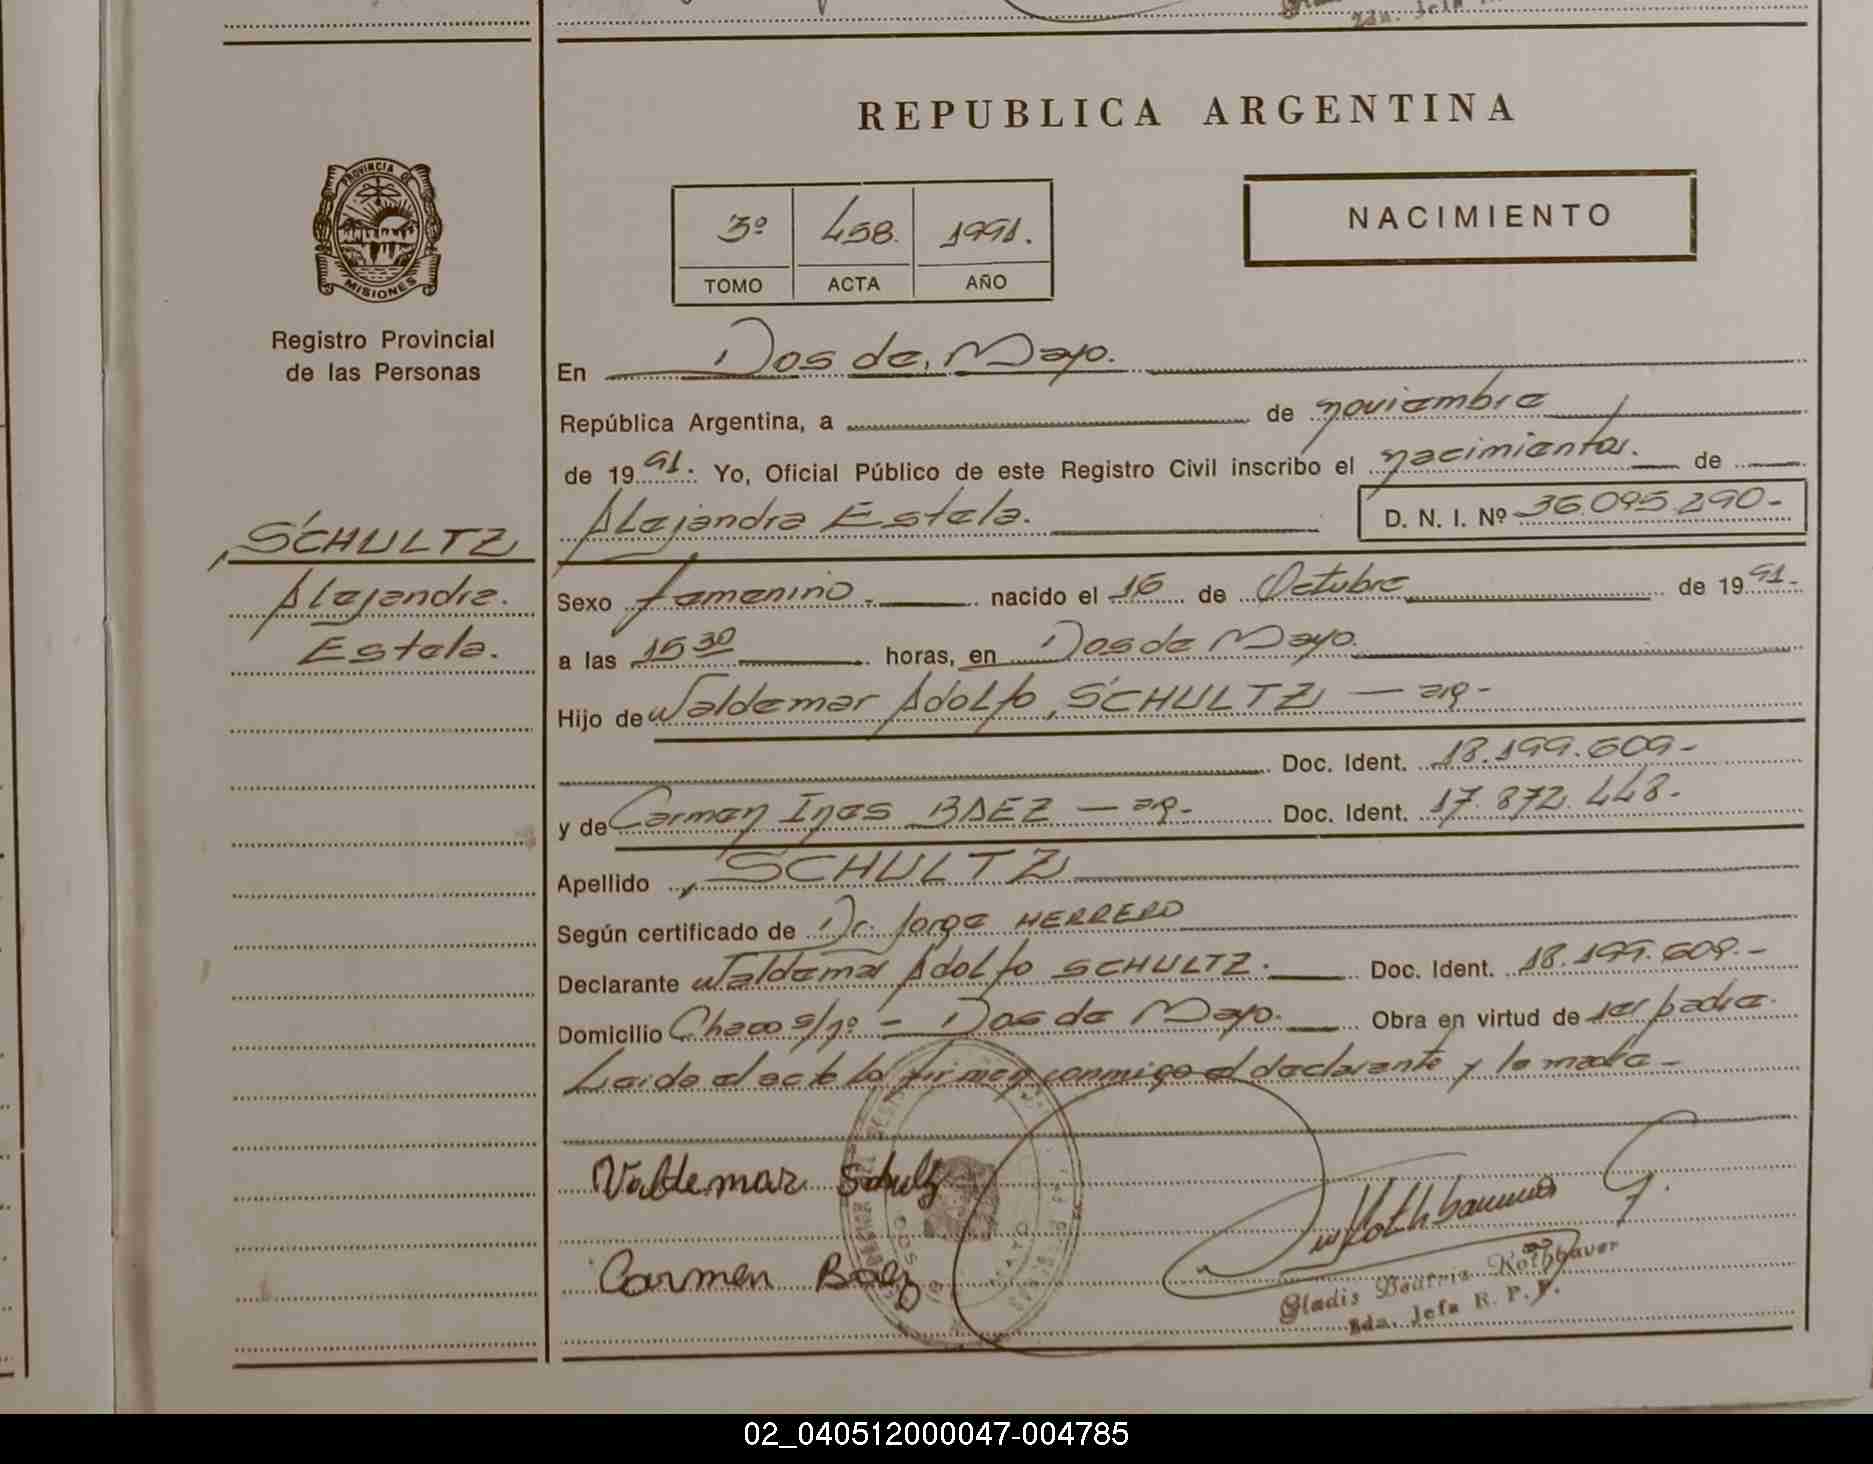 REPUBLICA ARGENTINA
PROVINCIA DE
MISIONES
Registro Provincial
de las Personas
3º 458. 1991.
TOMO ACTA AÑO
NACIMIENTO
En Dos de Mayo.
República Argentina, a de noviembre
de 1991. Yo, Oficial Público de este Registro Civil inscribo el nacimiento. de
Alejandra Estela. D. N. I. Nº 36.095.290-
SCHULTZ
Alejandra.
Estela.
Sexo femenino. nacido el 16 de Octubre de 1991-
a las 15 30 horas, en Dos de Mayo.
Hijo de Waldemar Adolfo SCHULTZ — ar-
Doc. Ident. 18.199.609-
y de Carmen Ines BAEZ — ar- Doc. Ident. 17.872.448-
Apellido SCHULTZ
Según certificado de Dr. Jorge HERRERO
Declarante Waldemar Adolfo SCHULTZ. Doc. Ident. 18.199.609.-
Domicilio Chaco s/nº - Dos de Mayo. Obra en virtud de ser padre.
Leida el acta la firman conmigo el declarante y la madre-
Valdemar Schulz
Carmen Baez
Gladis Beatriz Rothbauer
2da. Jefa R. P. P.
02_040512000047-004785